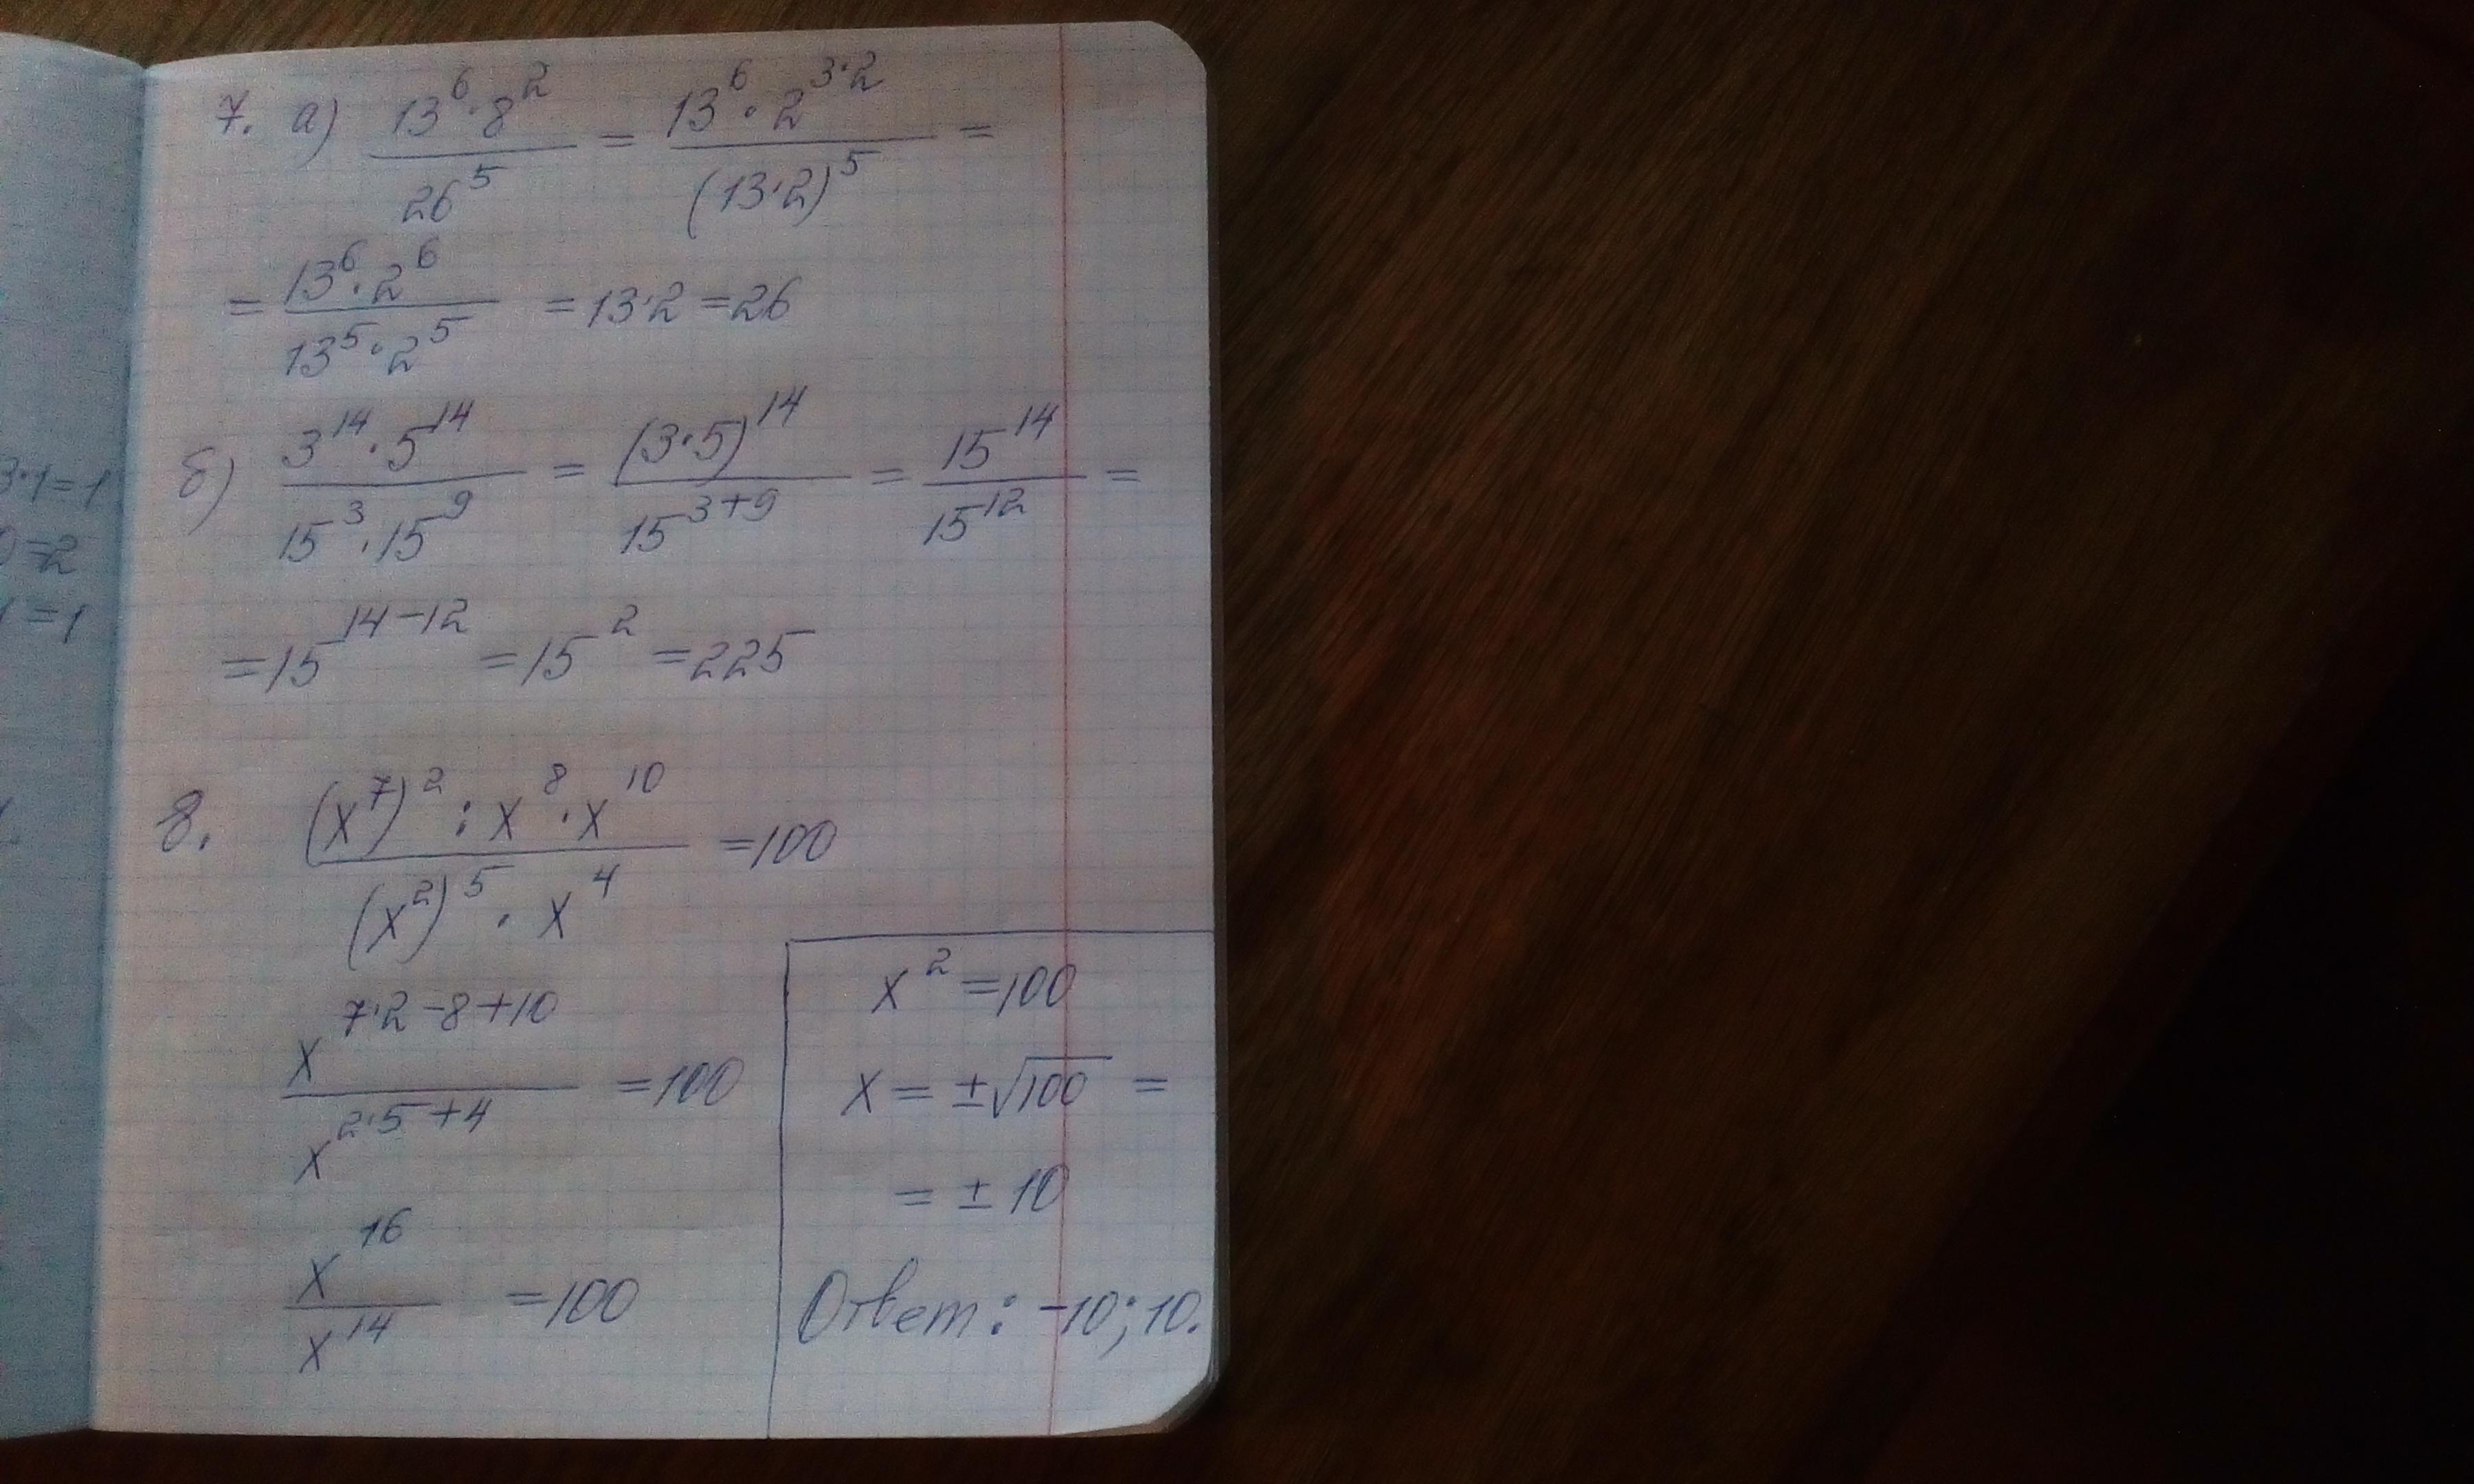 3·1=1
0=2
1=1
7. а) 13^6·8^2/26^5 = 13^6·2^(3·2)/(13·2)^5 =
= 13^6·2^6/13^5·2^5 = 13·2 = 26
б) 3^14·5^14/15^3·15^9 = (3·5)^14/15^(3+9) = 15^14/15^12 =
= 15^(14-12) = 15^2 = 225
8. (x^7)^2 : x^8 · x^10/(x^2)^5 · x^4 = 100
x^(7·2-8+10)/x^(2·5+4) = 100
x^16/x^14 = 100
x^2 = 100
x = ±√100 =
= ±10
Ответ: -10; 10.